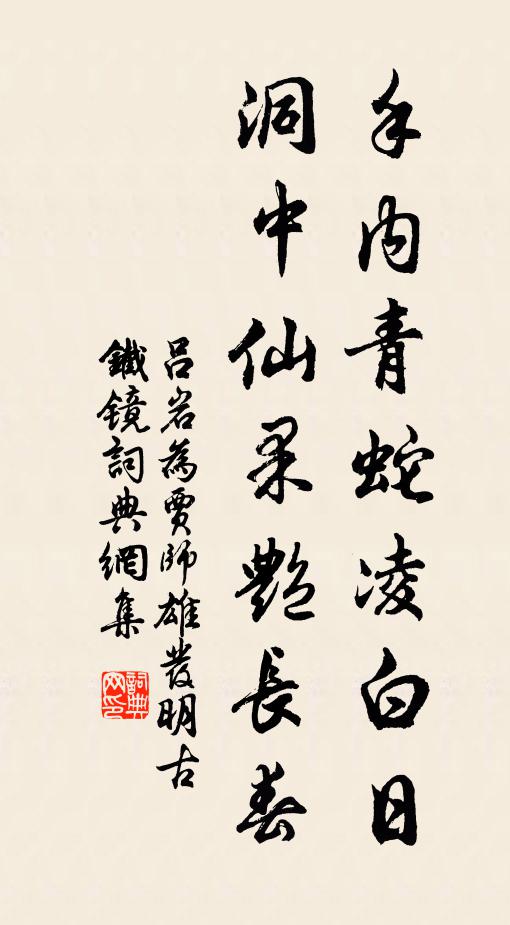 手内青蛇凌白日
洞中仙果艷長春
吕岩為賈師雄發明古
鐵鏡詞典網集
詞典网印